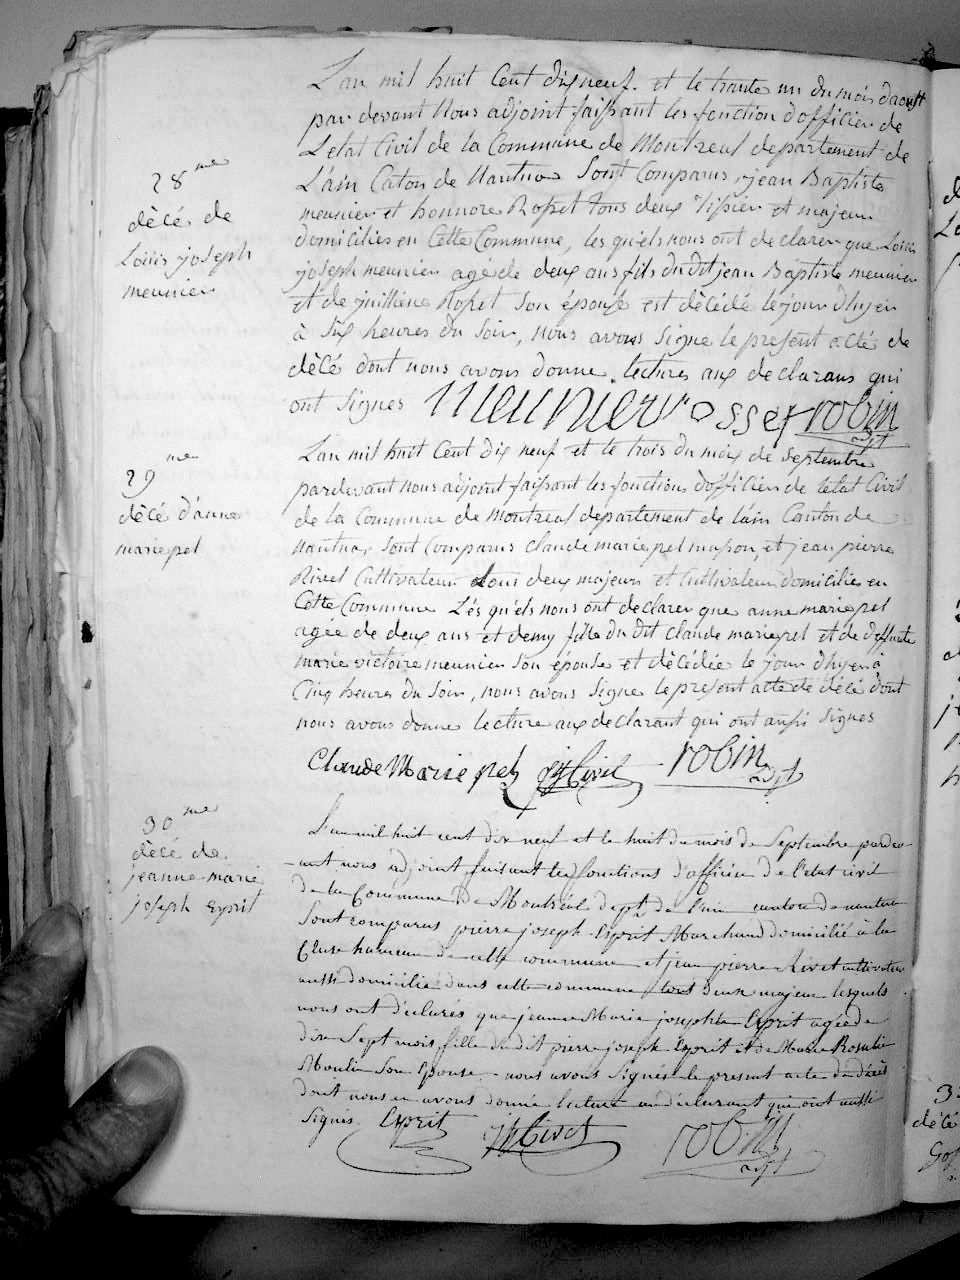 28me
décé de
Louis joseph
meunier
L'an mil huit Cent dix neuf. et le trante un du mois d'aoust
par devant Nous adjoint faissant les fonction d'officier de
L'etat Civil de la Commune de Montreal departement de
L'ain Caton de Nantua Sont Comparus, jean Baptiste
meunier et honnore Rosset tous deux et majeur
domiciliés en Cette Commune, les qu'els nous ont declarer que Louis
joseph meunier agé de deux ans fils du dit jean Baptiste meunier
et de juillienne Rosset Son épouse est décédé le jour d'hyer
à six heures du Soir, nous avons Signe le present acte de
décé dont nous avons donne lecture aux declarans qui
ont Signes Meunier rosset robin
adjt
29me
décé d'anne
marie pel
L'an mil huit Cent dix neuf et le trois du mois de Septembre
pardevant nous adjoint faissant les fonctions d'officier de l'etat Civil
de la Commune de Montreal departement de l'ain Canton de
Nantua, Sont Comparus Claude marie pel masson, et jean pierre
Rivet Cultivateur tous deux majeurs et Cultivateur domiciliés en
Cette Commune Lés qu'els nous ont declarer que anne marie pel
agée de deux ans et demy fille du dit Claude marie pel et de deffunte
marie victoire meunier Son épouse et décédée le jour d'hyer à
Cinq heures du Soir, nous avons Signe le present acte de décé dont
nous avons donne lecture aux declarant qui ont aussi Signes
Claude Marie pel jp Rivet robin
adjt
30me
décé de
jeanne marie
joseph Esprit
L'an mil huit cent dix neuf et le huit du mois de Septembre pardev-
-ant nous adjoint faisant les fonctions d'officier de l'etat civil
de la Commune de Montréal dept de l'ain canton de nantua
Sont comparus pierre joseph Esprit Marchand domicilié à la
Cluse hameau de cette commune et jean pierre Rivet cultivateur
aussi domicilié dans cette commune tout deux majeur lesquels
nous ont déclarés que jeanne Marie josephte Esprit agée de
dix Sept mois fille du dit pierre joseph Esprit et de Marie Rosalie
Moulin Son Epouse nous avons Signés le present acte de décès
dont nous en avons donné lecture au déclarant qui ont aussi
Signés Esprit jp Rivet robin
adjt